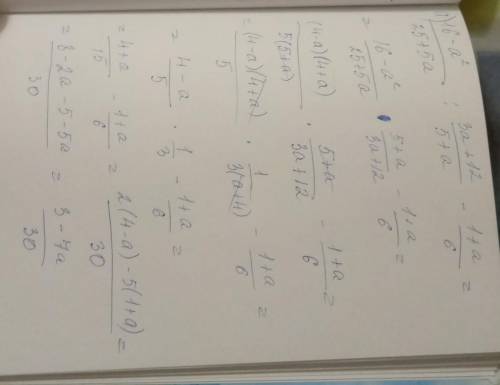 1) 16-a² / 25+5a : 3a+12 / 5+a - 1+a / 6 =
= 16-a² / 25+5a · 5+a / 3a+12 - 1+a / 6 =
(4-a)(4+a) / 5(5+a) · 5+a / 3a+12 - 1+a / 6 =
= (4-a)(4+a) / 5 · 1 / 3(a+4) - 1+a / 6 =
= 4-a / 5 · 1 / 3 - 1+a / 6 =
= 4-a / 15 - 1+a / 6 = 2(4-a)-5(1+a) / 30 =
= 8-2a-5-5a / 30 = 3-7a / 30